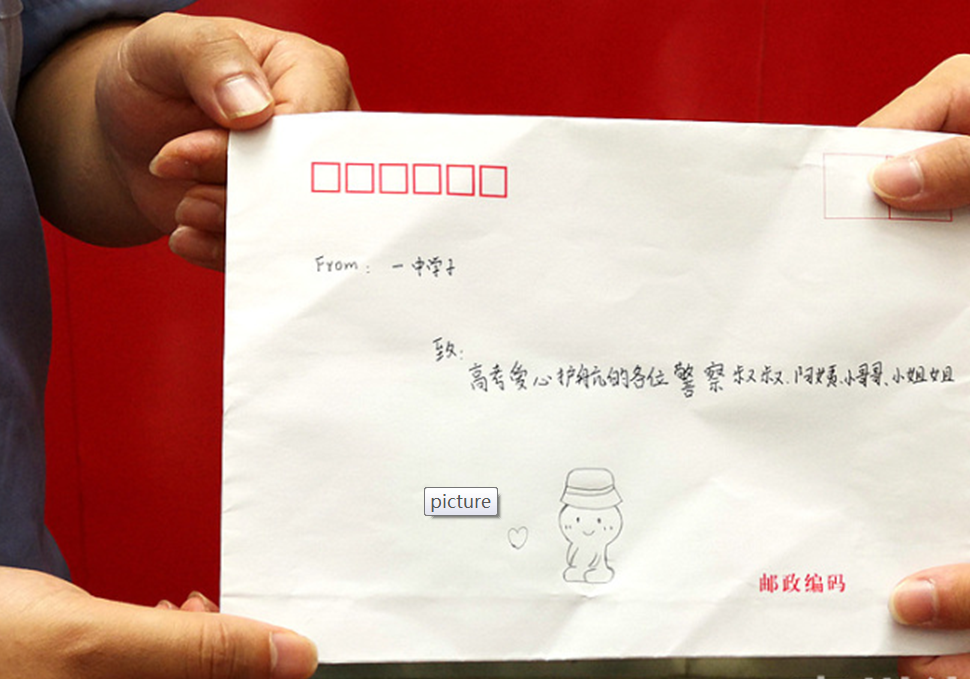 From: 一中学子
致:
高考爱心护航的各位警察叔叔、阿姨、小哥哥、小姐姐
picture
邮政编码